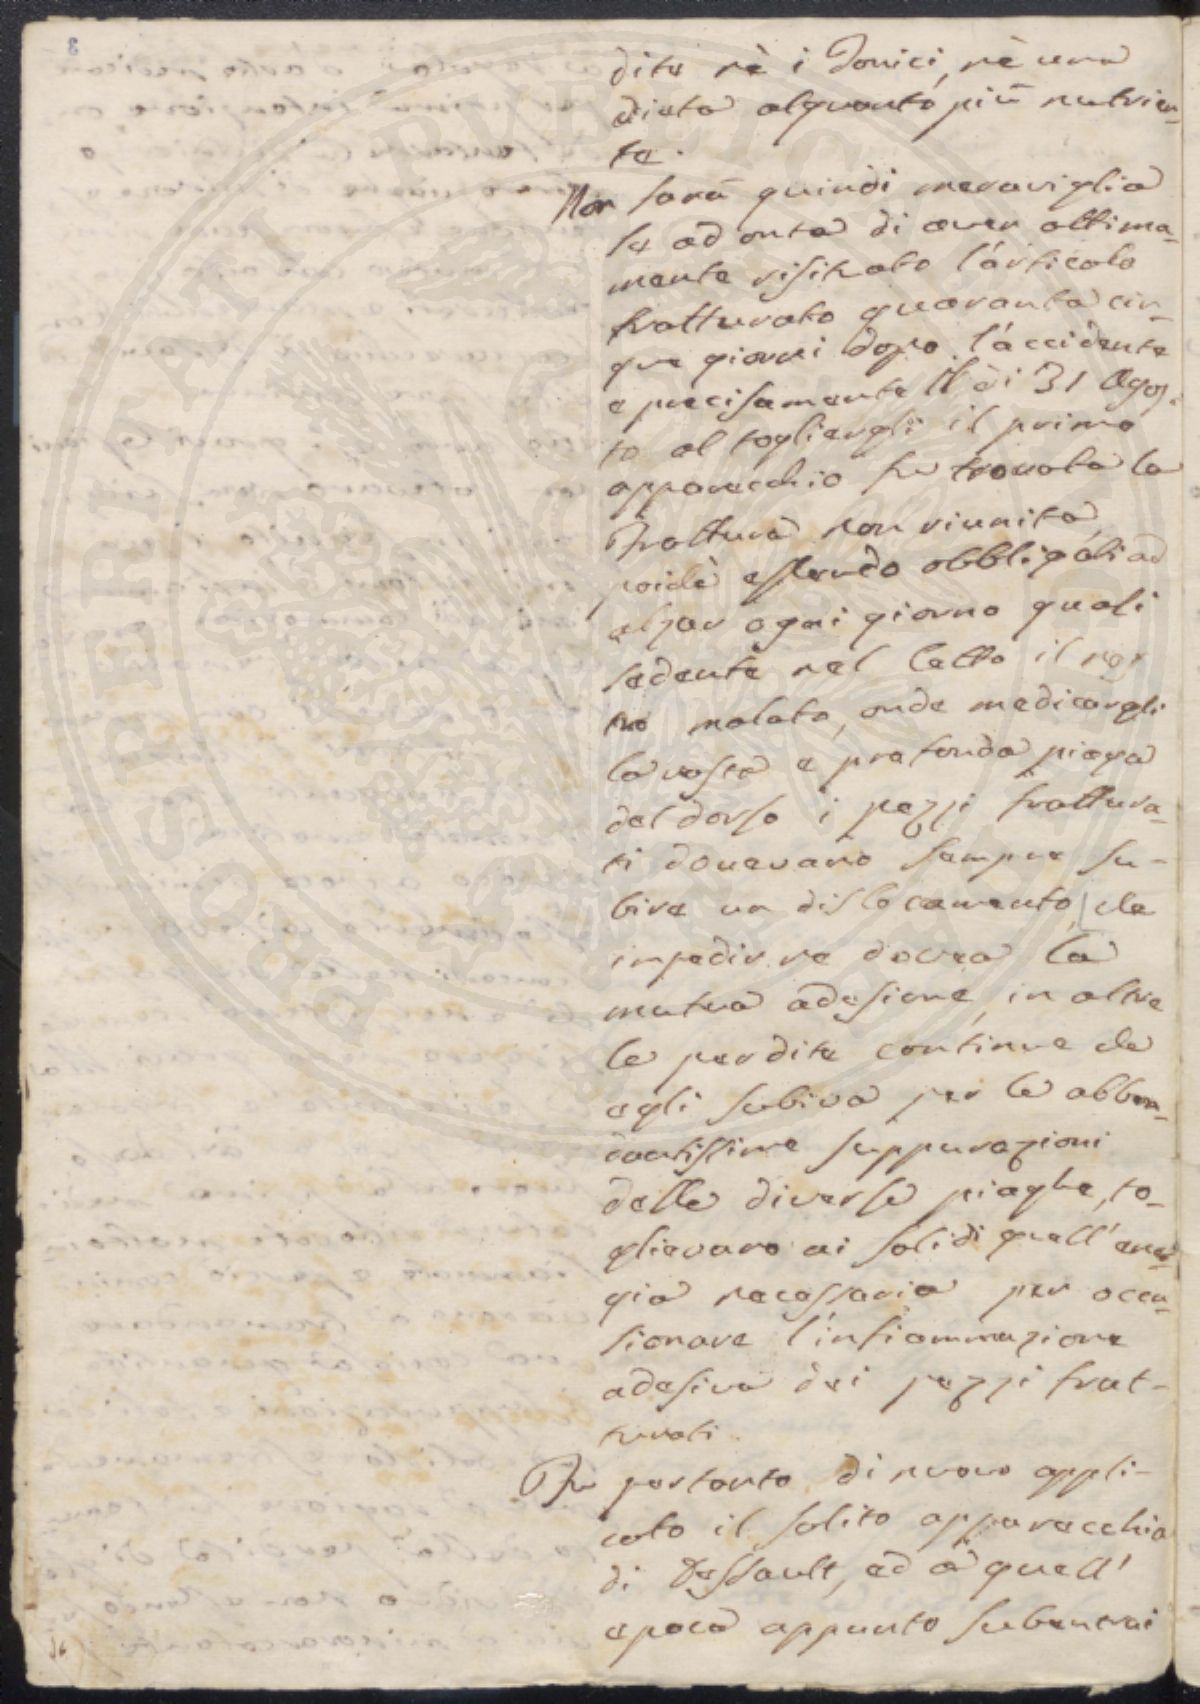 8
dite nè i Tonici, nè una
dieta alquanto più nutrien-
te.
Non sarà quindi meraviglia
se ad onta di aver ottima-
mente risituato l'articolo
fratturato quaranta cin-
que giorni dopo l'accidente
e precisamente il dì 31 Agos-
to al togliergli il primo
apparecchio fu trovata la
Frattura non riunita,
poichè essendo obbligati ad
alzar ogni giorno quasi
sedente nel letto il
malato, onde medicargli
la vasta e profonda piaga
del dorso i pezzi frattura-
ti dovevano sempre su-
bire un dislocamento, che
impedirne dovea la
mutua adesione, in oltre
le perdite continue che
egli subiva per le abbon-
dantissime suppurazioni
delle diverse piaghe, to-
glievano ai solidi quell'ener-
gia necessaria per occa-
sionare l'infiammazione
adesiva dei pezzi frat-
turati.
Fu pertanto di nuovo appli-
cato il solito apparecchio
di Dessault, ed a quell'
epoca appunto subentrai
PROSPERITATI PVBLICAE